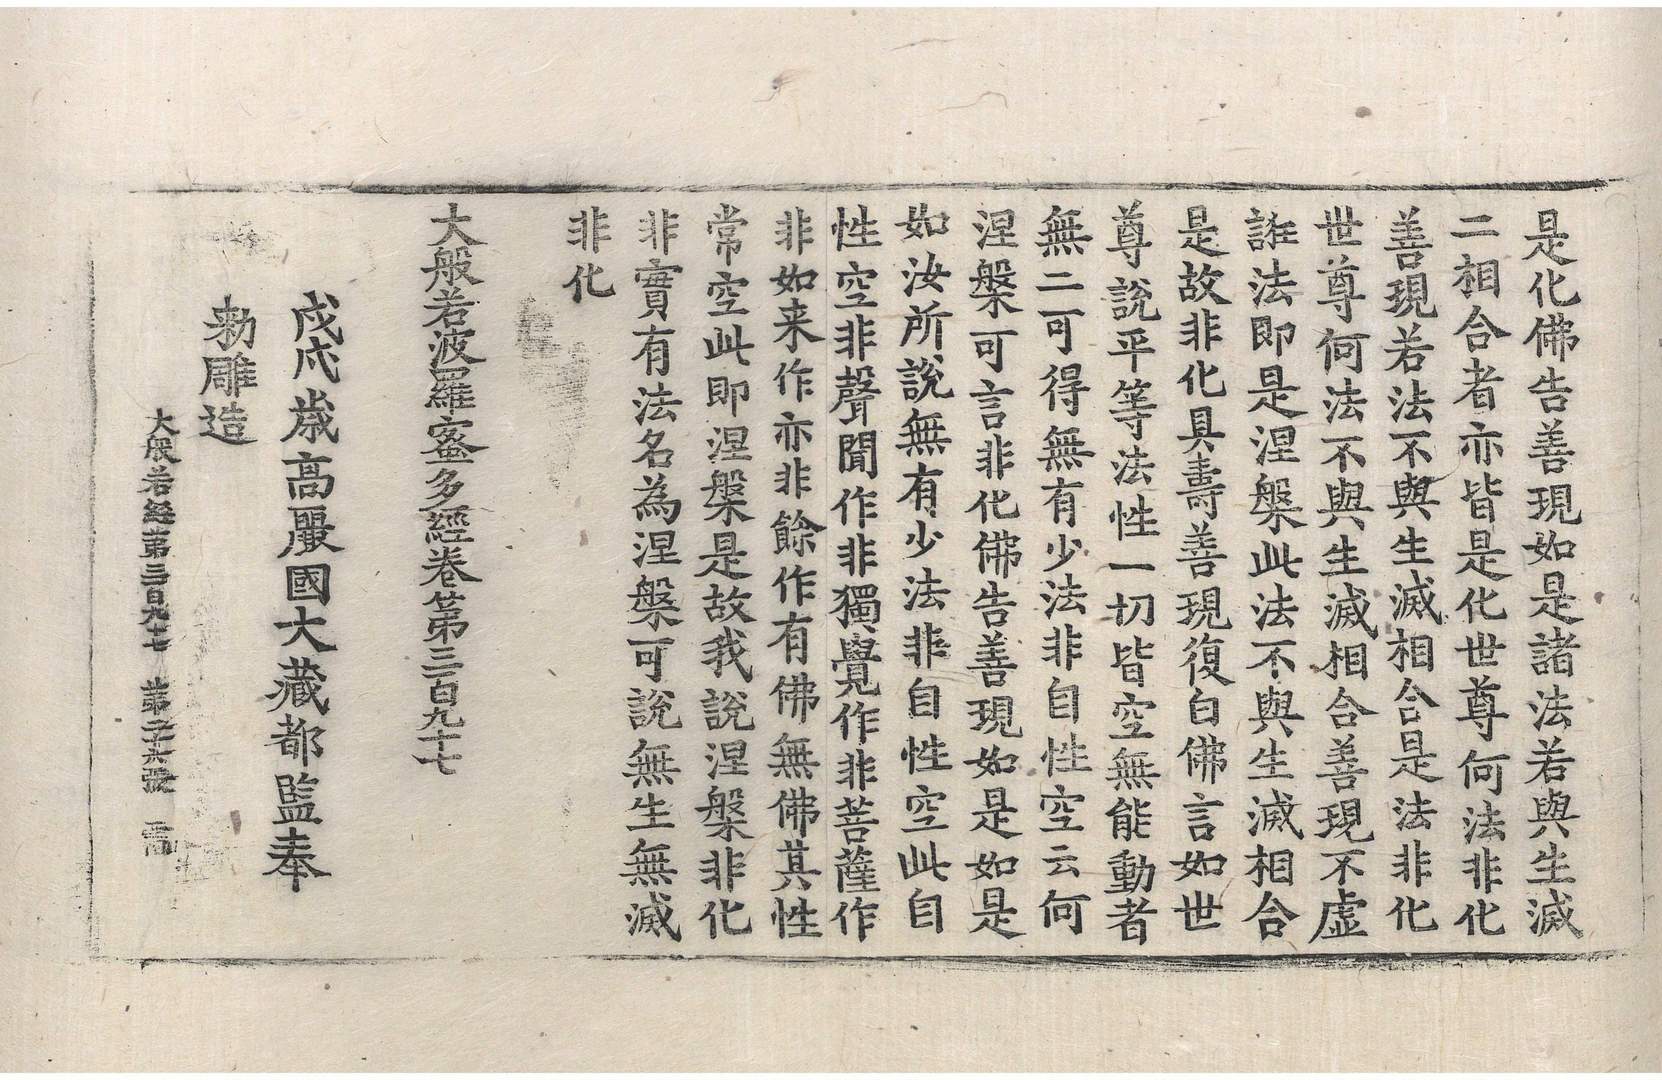 是化佛告善現如是諸法若與生滅
二相合者亦皆是化世尊何法非化
善現若法不與生滅相合是法非化
世尊何法不與生滅相合善現不虛
誑法即是涅槃此法不與生滅相合
是故非化具壽善現復白佛言如世
尊說平等法性一切皆空無能動者
無二可得無有少法非自性空云何
涅槃可言非化佛告善現如是如是
如汝所說無有少法非自性空此自
性空非聲聞作非獨覺作非菩薩作
非如来作亦非餘作有佛無佛其性
常空此即涅槃是故我說涅槃非化
非實有法名為涅槃可說無生無滅
非化
大般若波羅蜜多經卷第三百九十七
戊戌歲高麗國大藏都監奉
勑雕造
大般若經第三百九十七 第二十六張